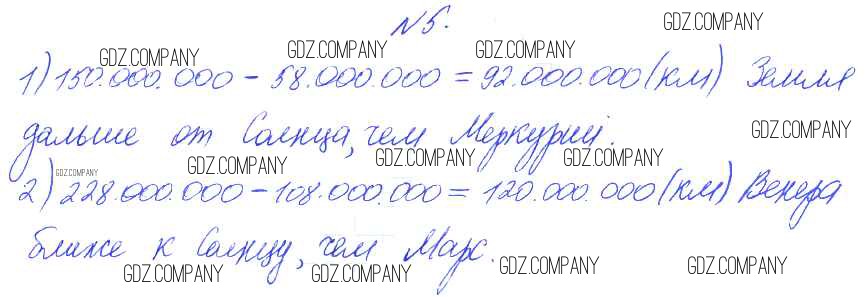 №5.
GDZ.COMPANY
GDZ.COMPANY GDZ.COMPANY GDZ.COMPANY
1) 150.000.000 - 58.000.000 = 92.000.000 (км) Земля
дальше от Солнца, чем Меркурий.
GDZ.COMPANY
GDZ.COMPANY GDZ.COMPANY GDZ.COMPANY GDZ.COMPANY
2) 228.000.000 - 108.000.000 = 120.000.000 (км) Венера
ближе к Солнцу, чем Марс.
GDZ.COMPANY GDZ.COMPANY GDZ.COMPANY GDZ.COMPANY